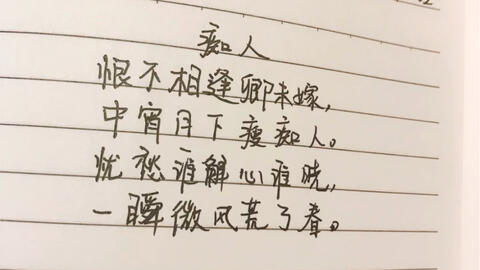 痴人
恨不相逢卿未嫁,
中宵月下瘦痴人。
忧愁谁解心谁晓,
一瞬微风荒了春。